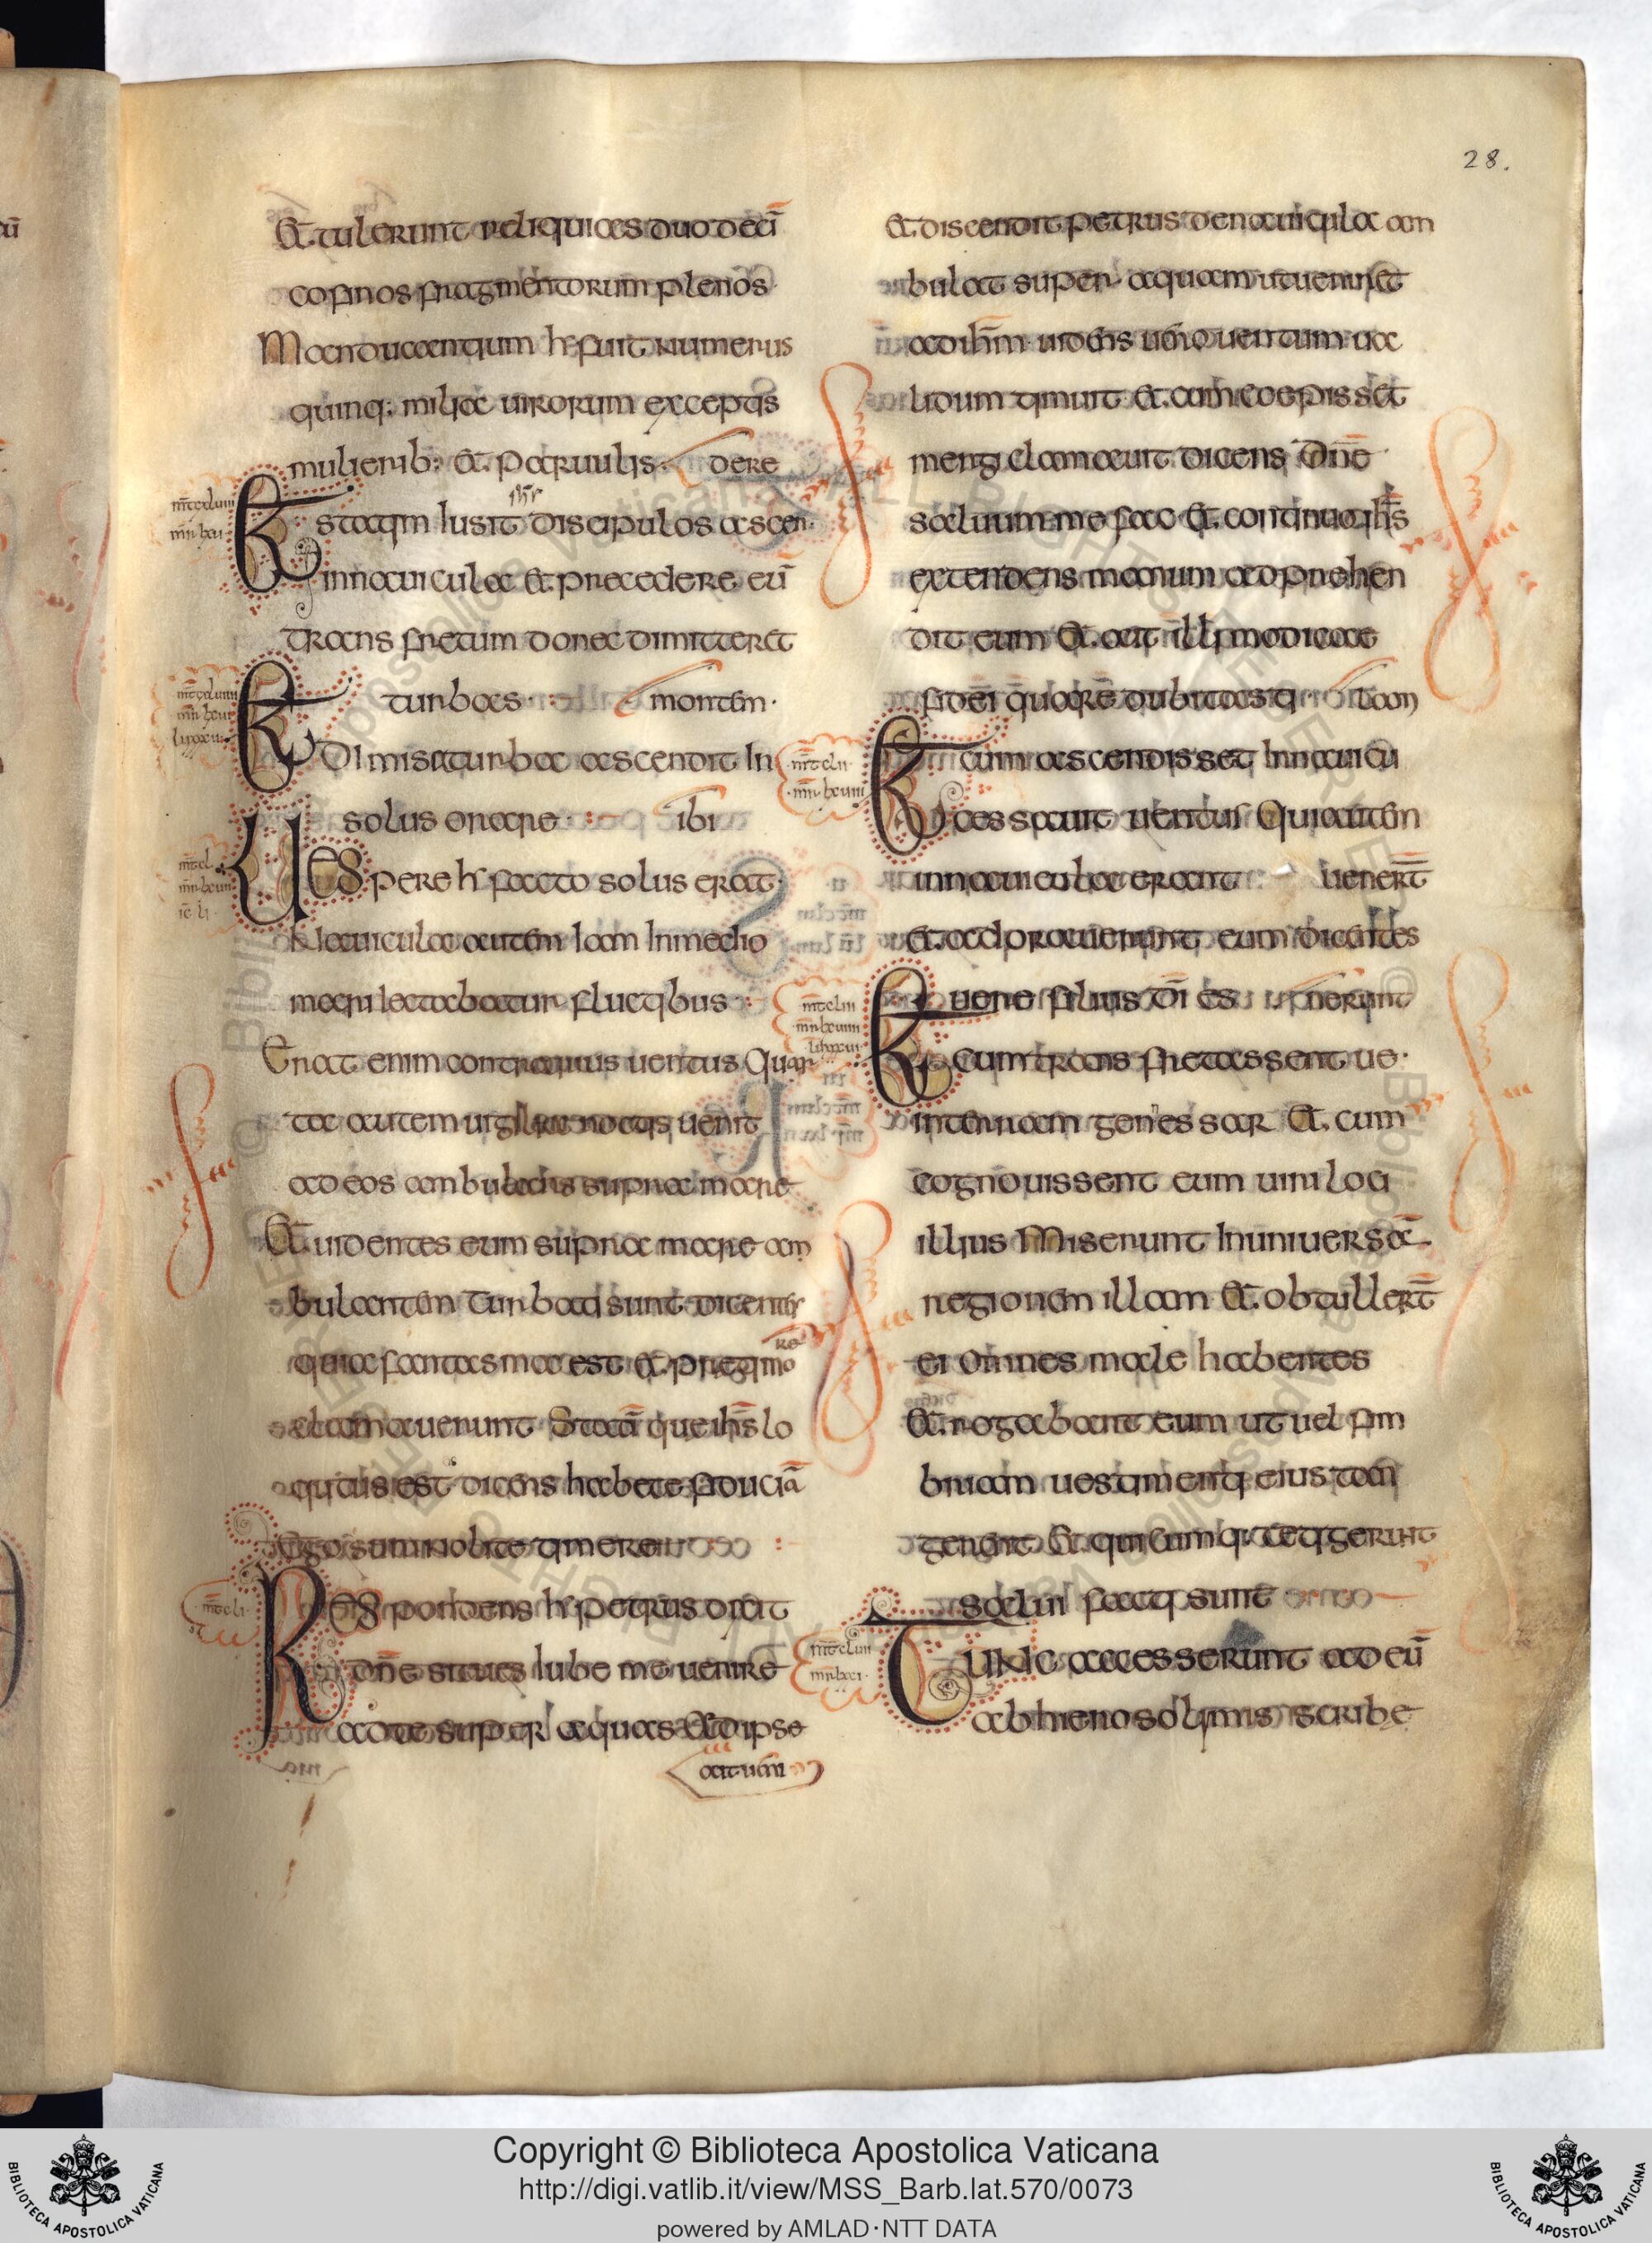 28.
Et tulerunt reliquias duodecī
cofinos fragmentorum plenos
Manducantium hr fuit numerus
quinq; milia uirorum exceptis
mulierib; et paruulis dere
Et statim iusit discipulos ascen
in nauicula et precedere eū
trans fretum donec dimitteret
turbas montem
Et dimisa turba ascendit in
solus orare ibi
Uespere hr facto solus erat
Nauicula autem iam in medio
mari iactabatur fluctibus
Erat enim contrarius uentus Quar
ta autem uigilia noctis uenit
ad eos ambulans supra mare
Et uidentes eum supra mare am
bulantem Turbati sunt dicentes
quia fantasma est et pre timo re
clamauerunt Statī que ihs lo
qutus est dicens habete fiduciā
ego sum nolite timere
Respondens hr petrus dixit
dn̄e si tu es iube me uenire
ad te super aquas Et ipse
ait ueni
Et discendit petrus de nauicula am
bulat super aquam ut ueniret
ad ihm uidens uero uentum ua
lidum timuit Et cum coepisset
mergi clamauit dicens Dn̄e
saluum me fac Et continuo ihs
extendens manum adprehen
dit eum Et ait illi modicae
fidei quare dubitasti
Et cum ascendisset in nauicu lam
cessauit uentus Qui autem
in nauicula erant uenert̄
et adorauerunt eum dicentes
uere filius dī es nerunt
Et cum trans fretassent ue
in terram genessar Et cum
cognouissent eum uiri loci
illius Miserunt in uniuersā
regionem illam Et obtullert̄
ei omnes male habentes
Et rogabant eum ut uel fim
briam uestimenti eius tan
gerent Et quicumq; tetigerunt
salui facti sunt
Tunc accesserunt ad eū
ab hierosolimis scribe
BIBLIOTECA APOSTOLICA VATICANA
Copyright © Biblioteca Apostolica Vaticana
http://digi.vatlib.it/view/MSS_Barb.lat.570/0073
powered by AMLAD·NTT DATA
BIBLIOTECA APOSTOLICA VATICANA